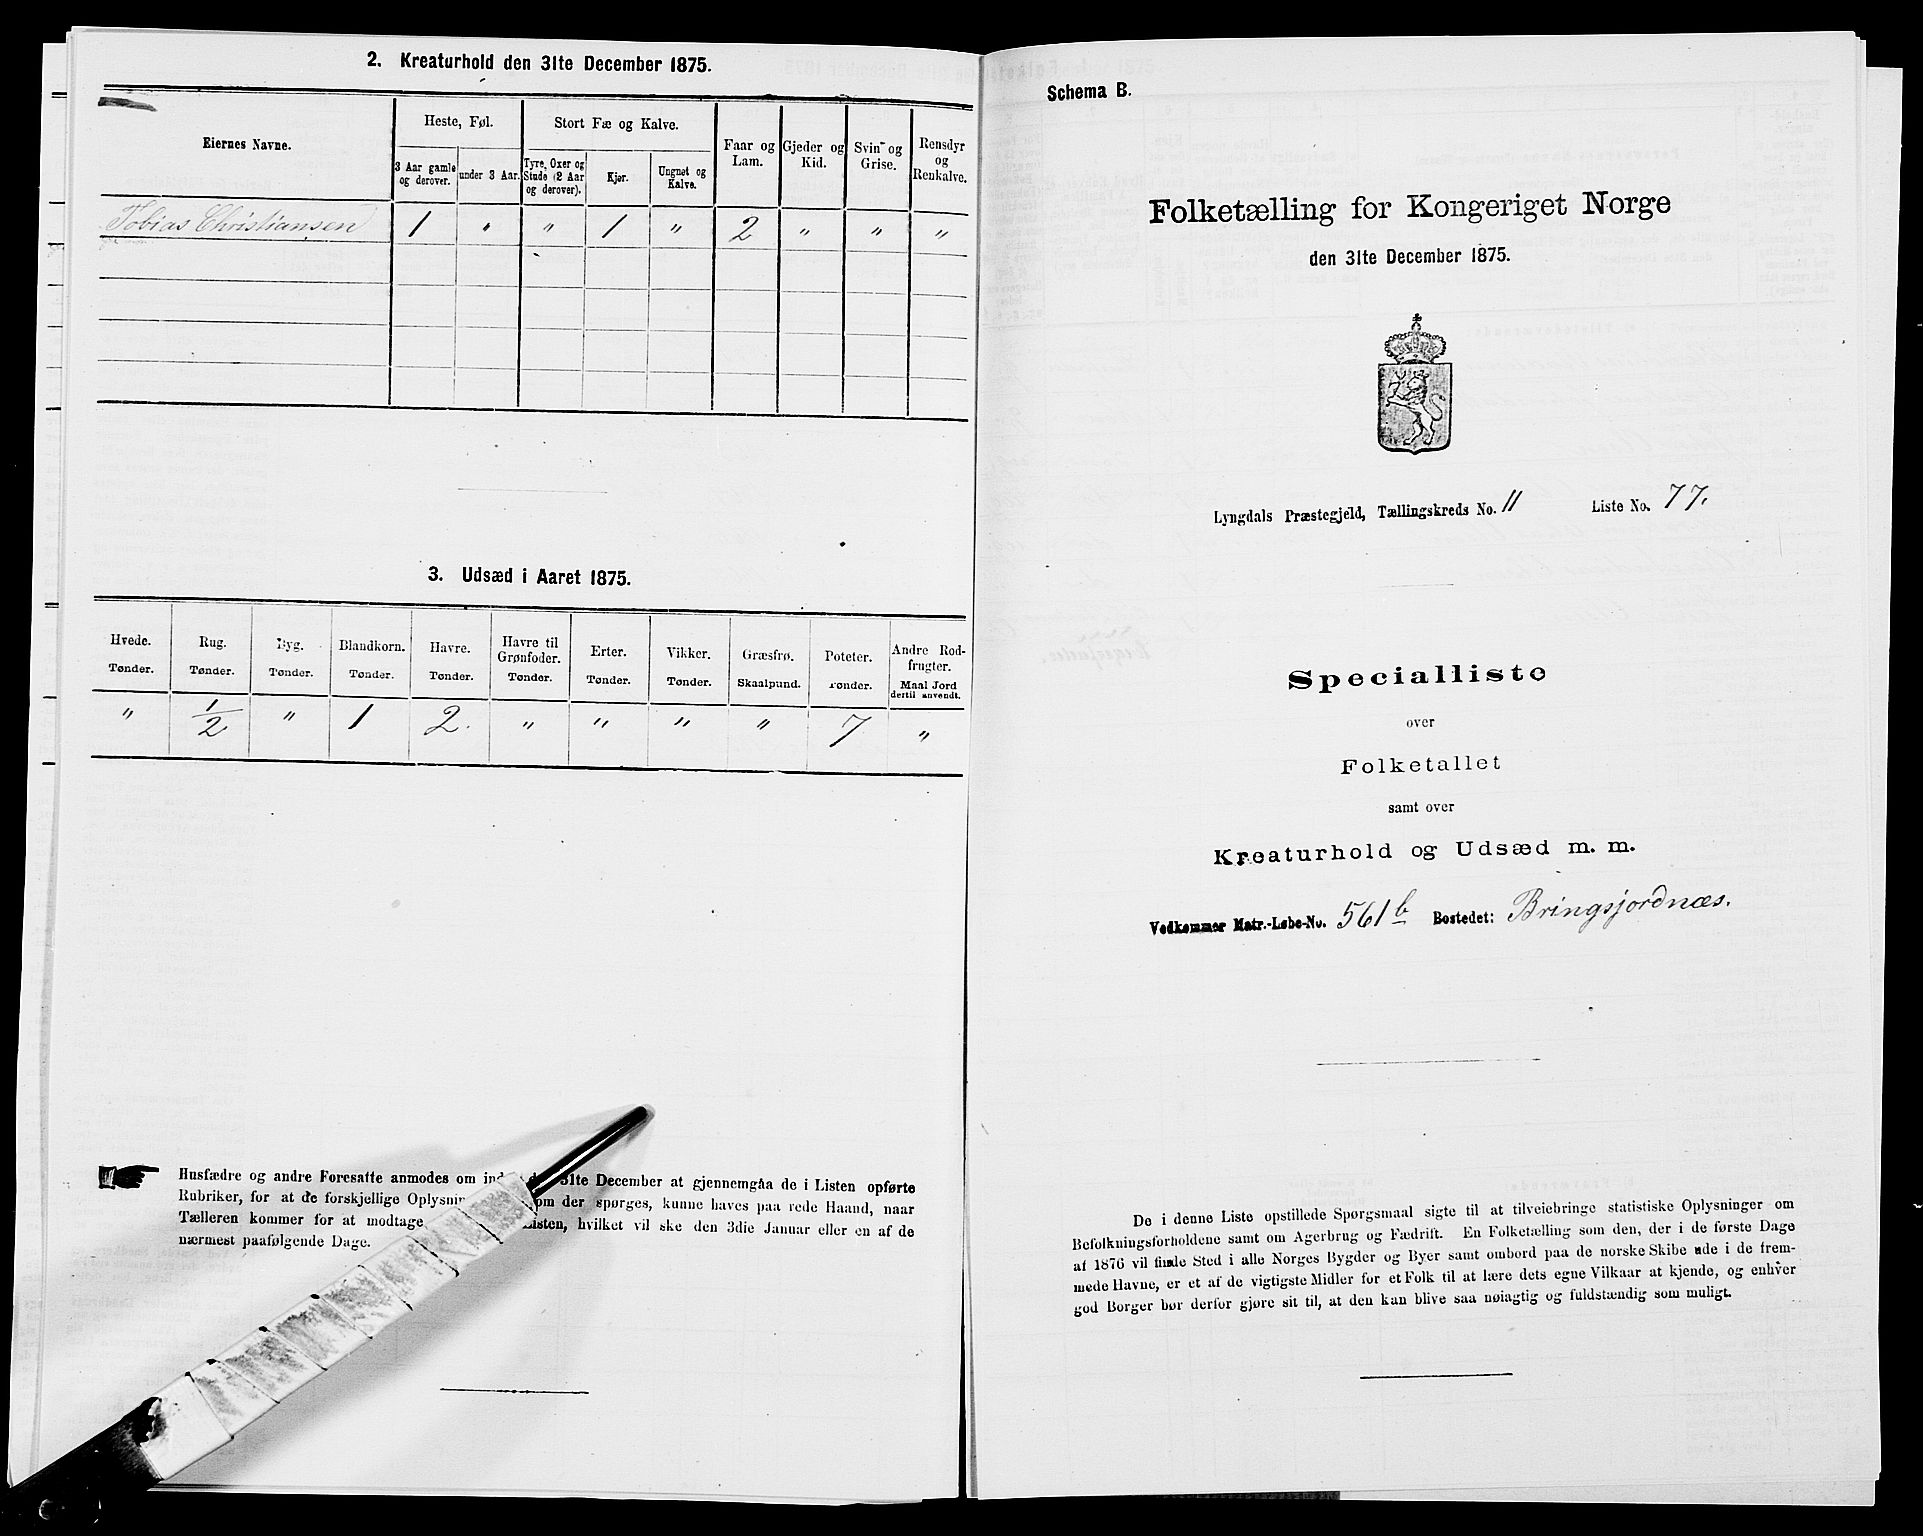 2. Kreaturhold den 31te December 1875.
Eiernes Navne.
Heste, Føl.
Stort Fæ og Kalve.
Faar og Lam.
Gjeder og Kid.
Svin og Grise.
Rensdyr og Renkalve.
3 Aar gamle og derover.
under 3 Aar.
Tyre, Oxer og Stude (2 Aar og derover).
Kjør.
Ungnøt og Kalve.
Tobias Christiansen 1 " " 1 " 2 " " "
3. Udsæd i Aaret 1875.
Hvede. Rug. Byg. Blandkorn. Havre. Havre til Grønfoder. Erter. Vikker. Græsfrø. Poteter. Andre Rodfrugter.
Tønder. Tønder. Tønder. Tønder. Tønder. Tønder. Tønder. Tønder. Skaalpund. Tønder. Maal Jord dertil anvendt.
" 1/2 " 1 2. " " " " 7 "
Husfædre og andre Foresatte anmodes om 31te December at gjennemgaa de i Listen opførte
Rubriker, for at de forskjellige der spørges, kunne haves paa rede Haand, naar
Tælleren kommer for at modtage Listen, hvilket vil ske den 3die Januar eller en af de
nærmest paafølgende Dage.
Schema B.
Folketælling for Kongeriget Norge
den 31te December 1875.
Lyngdals Præstegjeld, Tællingskreds No. 11 Liste No. 77.
Specialliste
over
Folketallet
samt over
Kreaturhold og Udsæd m. m.
Vedkommer Matr.-Løbe-No. 561b Bostedet: Bringsjordnæs.
De i denne Liste opstillede Spørgsmaal sigte til at tilveiebringe statistiske Oplysninger om
Befolkningsforholdene samt om Agerbrug og Fædrift. En Folketælling som den, der i de første Dage
af 1876 vil finde Sted i alle Norges Bygder og Byer samt ombord paa de norske Skibe ude i de frem-
mede Havne, er et af de vigtigste Midler for et Folk til at lære dets egne Vilkaar at kjende, og enhver
god Borger bør derfor gjøre sit til, at den kan blive saa nøiagtig og fuldstændig som muligt.